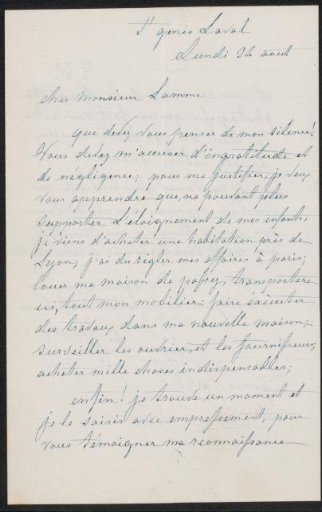 St genis Laval
Lundi 26 aout
cher Monsieur Lamme
que devez vous penser de mon silence!
Vous devez m'accuser d'ingratitude et
de négligence; pour me justifier, je veux
vous apprendre que, ne pouvant plus
supporter l'éloignement de mes enfants,
je viens d'acheter une habitation près de
Lyon; j'ai du régler mes affaires à paris;
louer ma maison de passy, transporter
ici, tout mon mobilier: faire exécuter
des travaux dans ma nouvelle maison,
surveiller les ouvriers, et les fournisseurs;
acheter mille choses indispensables;
enfin! je trouve un moment et
je le saisis avec empressement, pour
vous témoigner ma reconnaissance